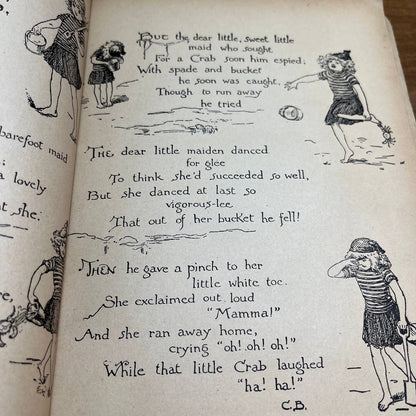 barefoot maid
a lovely
t she.
BUT the dear little, sweet little
maid who sought
For a Crab soon him espied;
With spade and bucket
he soon was caught,
Though to run away
he tried
THE dear little maiden danced
for glee
To think she'd succeeded so well,
But she danced at last so
vigorous-lee
That out of her bucket he fell!
THEN he gave a pinch to her
little white toe.
She exclaimed out loud
"Mamma!"
And she ran away home,
crying "oh! oh! oh!"
While that little Crab laughed
"ha! ha!"
C.B.